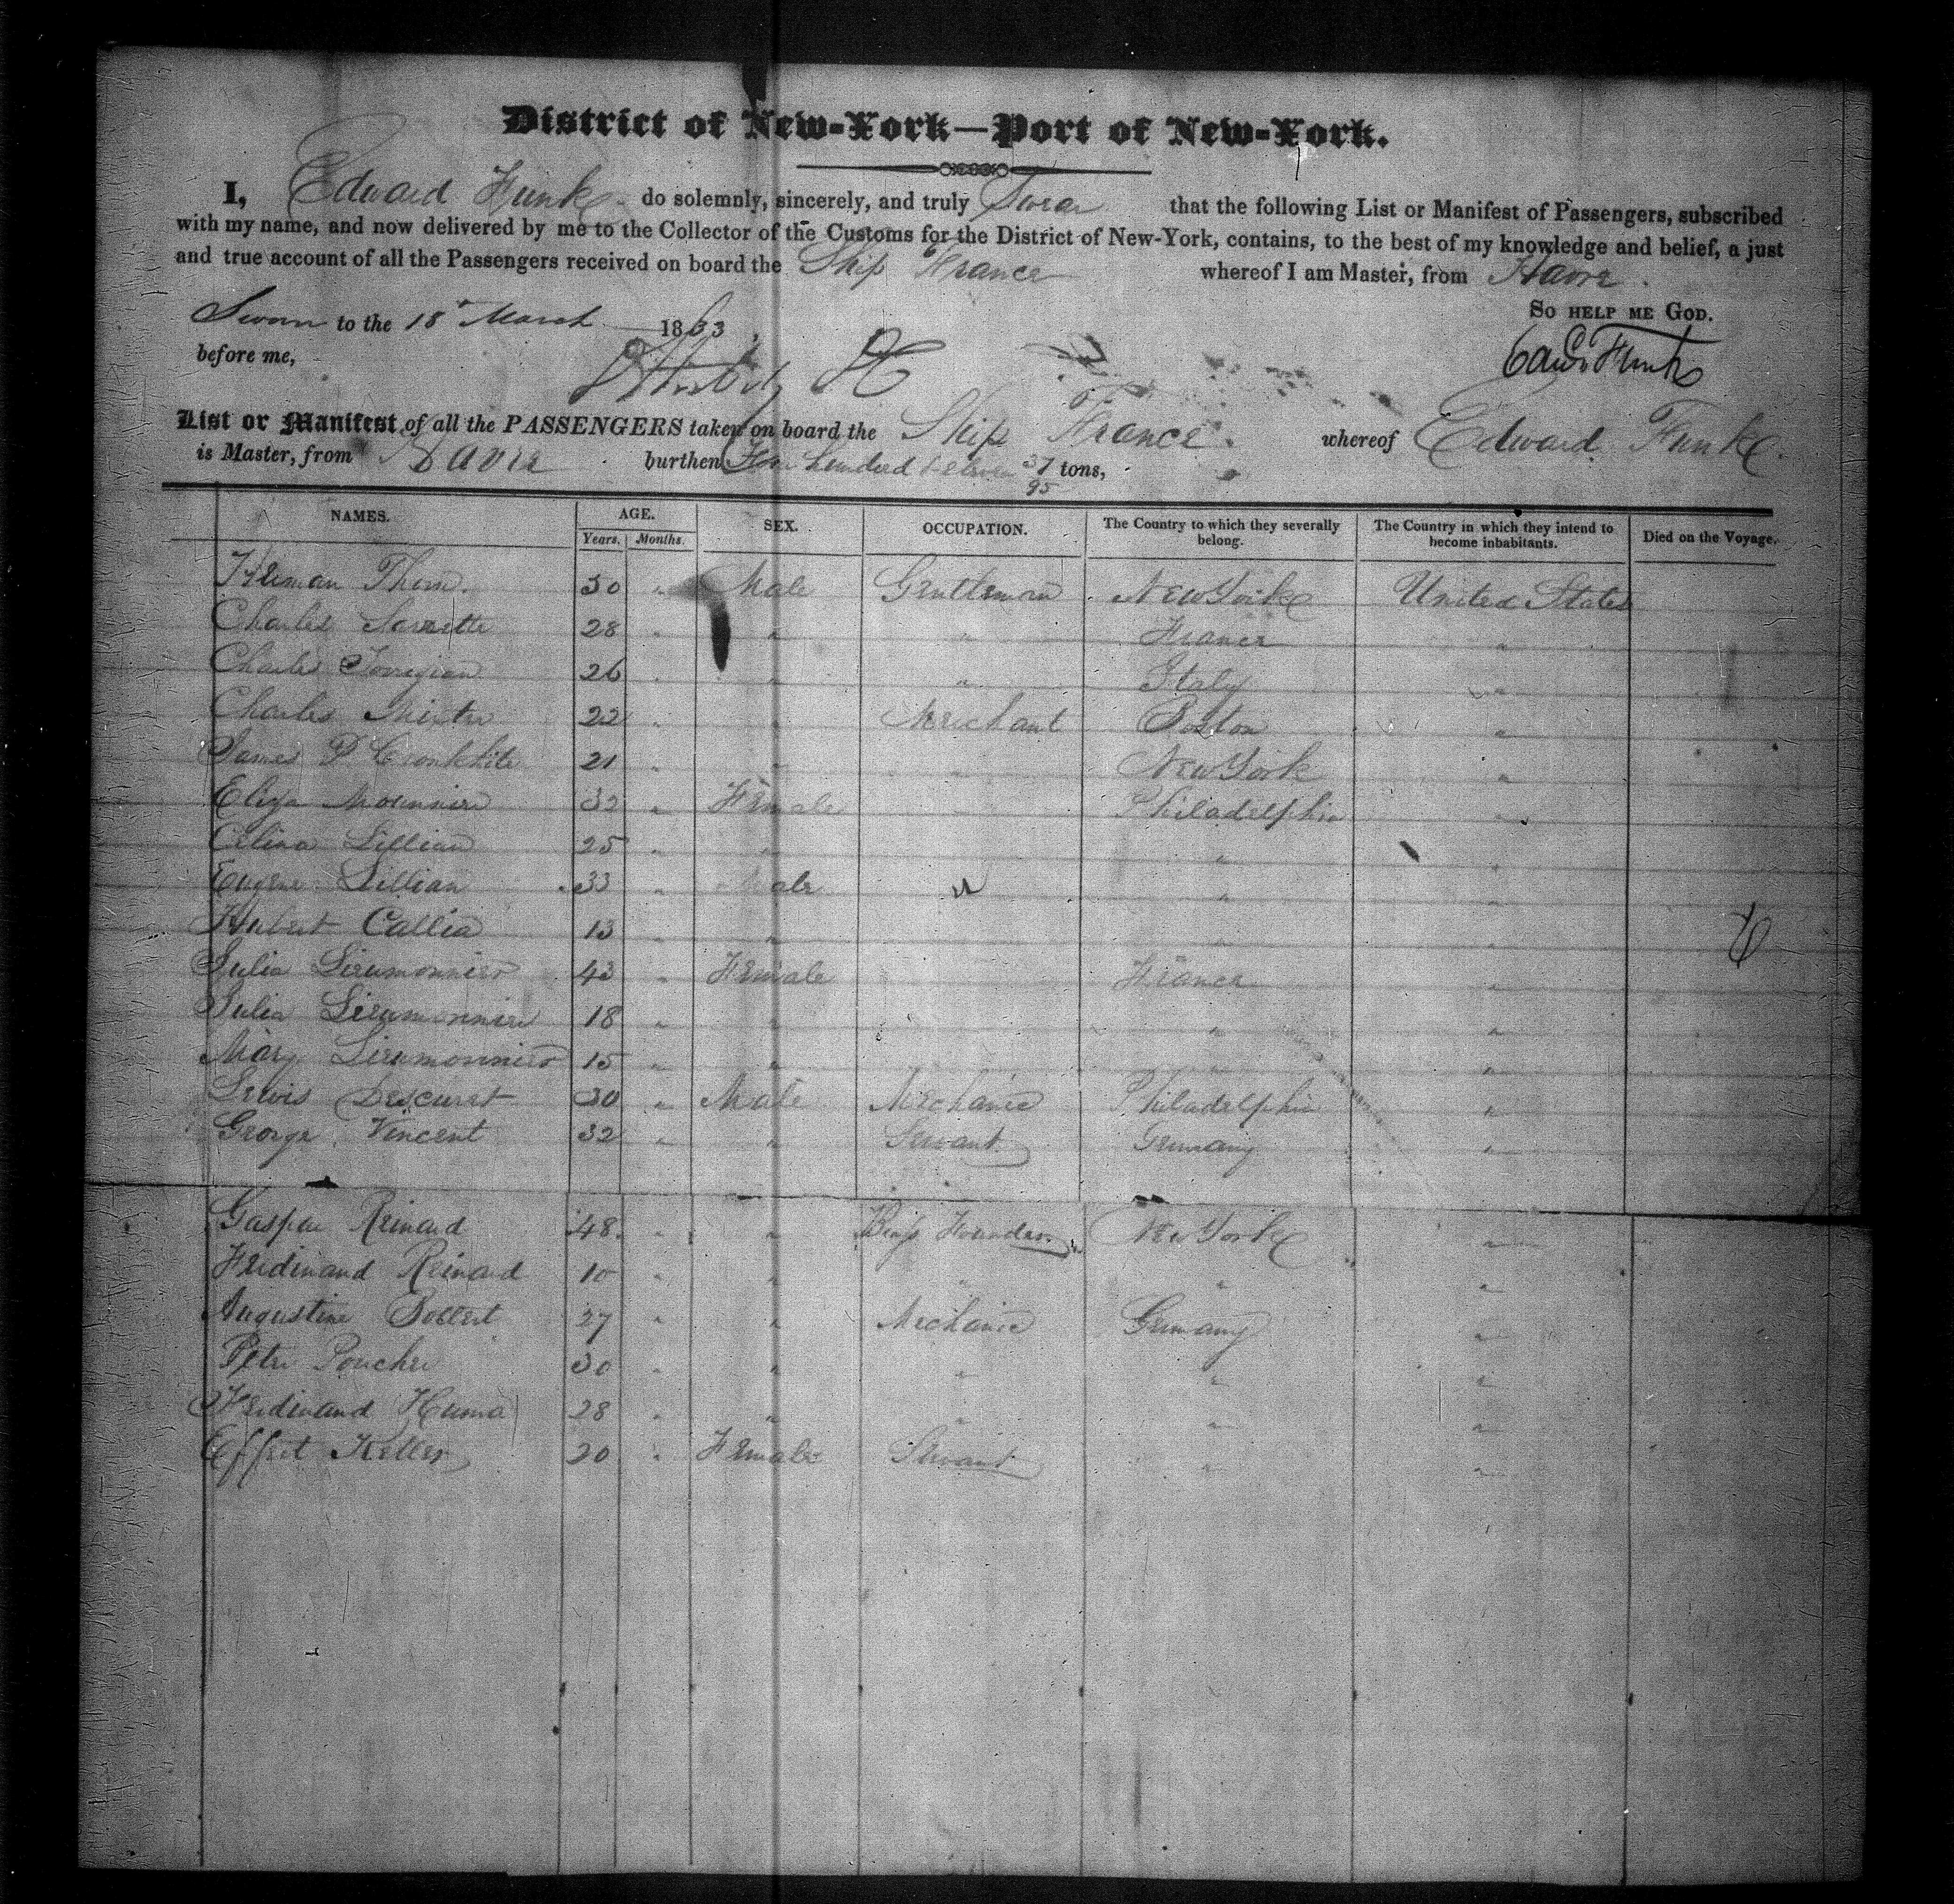 District of New-York—Port of New-York.
I, Edward Funk do solemnly, sincerely, and truly Swear that the following List or Manifest of Passengers, subscribed
with my name, and now delivered by me to the Collector of the Customs for the District of New-York, contains, to the best of my knowledge and belief, a just
and true account of all the Passengers received on board the Ship France whereof I am Master, from Havre.
So help me God.
Sworn to the 18 March 1833
before me,
Edwd Funk
List or Manifest of all the PASSENGERS taken on board the Ship France. whereof Edward Funk
is Master, from Havre burthen hundred & eleven 37/95 tons,
NAMES. AGE. SEX. OCCUPATION. The Country to which they severally belong. The Country in which they intend to become inhabitants. Died on the Voyage.
Years. Months.
Herman Thorn. 50 " Male Gentleman New York United States
Charles 28 " " " France "
Charles 26 " " " Italy "
Charles 22 " " Merchant Boston "
James P Cronkhite 21 " " New York "
Eliza 32 " Female Philadelphia "
Celina Lillian 25 " " " "
Eugene Lillian 33 " Male " "
Hubert Callia 13 " " " "
Julia 43 " Female France "
Julia 18 " " " "
Mary 15 " " " "
Lewis Descuret 30 " Male Mechanic Philadelphia "
George Vincent 32 " " Servant Germany "
Gaspar Reinard 48 " " Founder New York "
Ferdinand Reinard 10 " " " " "
Augustine 27 " " Mechanic Germany "
Peter 30 " " " " "
Ferdinand 28 " " " " "
Keller 20 " Female Servant " "